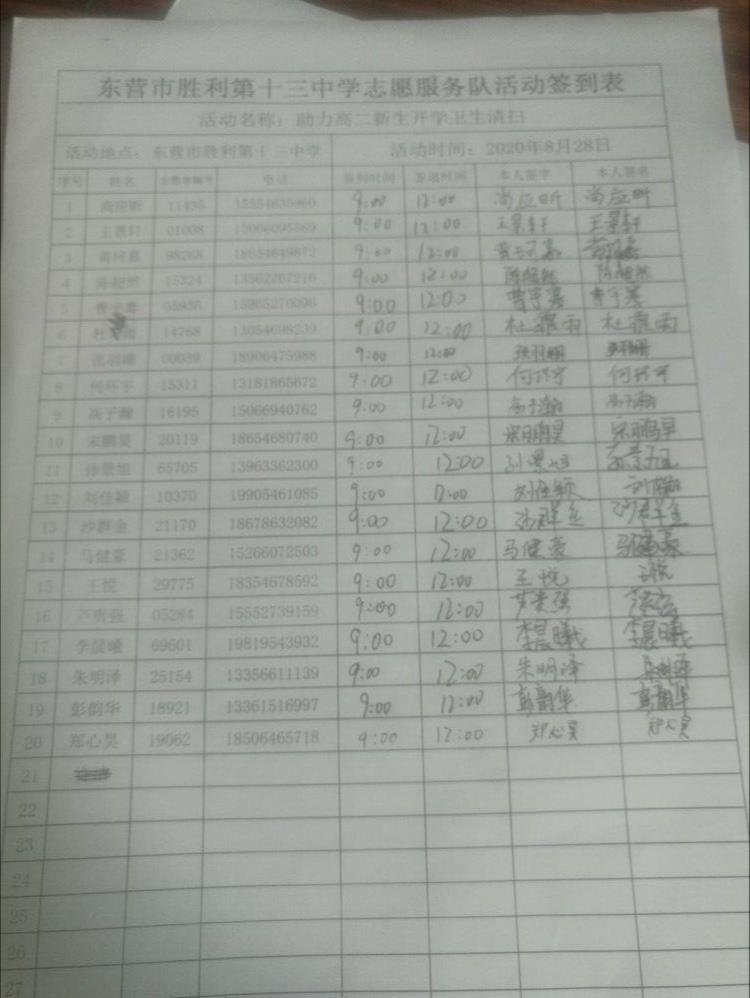 东营市胜利第十三中学志愿服务队活动签到表
活动名称：助力高二新生开学卫生清扫
活动地点：东营市胜利第十三中学 活动时间：2020年8月28日
序号 姓名 电话 签到时间 签退时间 本人签字 本人签名
1 尚应昕 11435 9:00 12:00 尚应昕 尚应昕
2 王景轩 01008 9:00 12:00 王景轩 王景轩
3 98268 18654649872 9:00 12:00
4 15324 13562267216 9:00 12:00
5 曹宇喜 15965270096 9:00 12:00
6 杜 14768 13054698239 9:00 12:00 杜霏雨 杜霏雨
7 00039 18906475988 9:00 12:00
8 何环宇 15311 13181865672 9:00 12:00 何环宇 何环宇
9 高子瀚 16195 15066940762 9:00 12:00 高子瀚 高子瀚
10 宋鹏昊 20119 18654680740 9:00 12:00 宋鹏昊 宋鹏昊
11 孙景旭 65705 13963362300 9:00 12:00 孙景旭
12 刘佳颖 10370 19905461085 9:00 12:00 刘佳颖
13 沙群金 21170 18678632082 9:00 12:00 沙群金 沙群金
14 马健豪 21362 15266072503 9:00 12:00 马健豪 马健豪
15 王悦 29775 18354678592 9:00 12:00 王悦 王悦
16 芦贵强 05284 15552739159 9:00 12:00 芦贵强
17 李晨曦 69601 19819543932 9:00 12:00 李晨曦 李晨曦
18 朱明泽 25154 13356611139 9:00 12:00 朱明泽 朱明泽
19 彭韵华 18921 13361516997 9:00 12:00 彭韵华 彭韵华
20 郑心昊 19062 18506465718 9:00 12:00 郑心昊 郑心昊
21
22
23
24
25
26
27